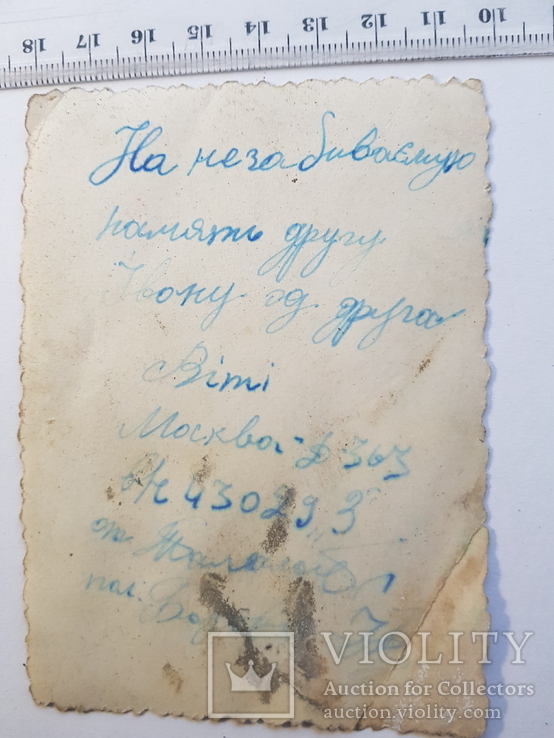 18 17 16 15 14 13 12 11 10
На незабиваємую
память другу
Івану од друга
Віті
Москва-Д 363
43029
VIOLITY
Auction for Collectors
auction.violity.com